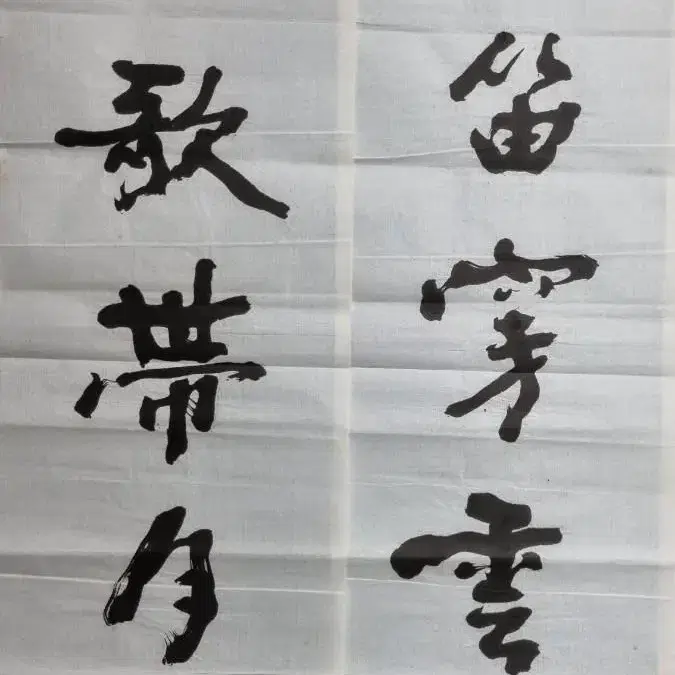 笛穿雲
歌帶月